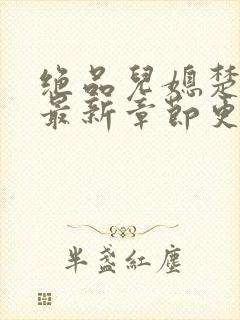 绝品儿媳楚
最新章节更
半盏红尘